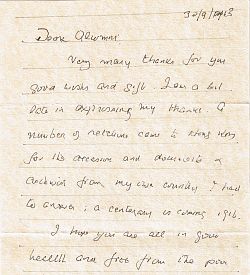 Dear Alumni
Very many thanks for you
good wishes and gift. I am a bit
late in expressing my thanks. A
number of came to Hong Kong
for the occasion and
from my own country I had
to answer; a centenary is coming 1916.
I hope you are all in good
health and free from the